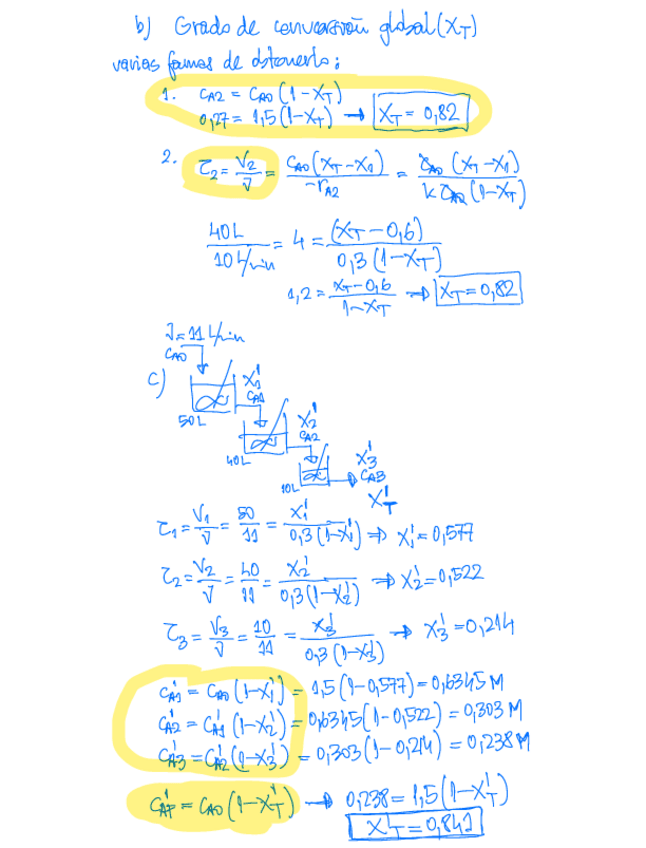 b) Grado de conversión global (X_T)
varias formas de obtenerlo:
1. C_A2 = C_A0 (1-X_T)
0,27 = 1,5 (1-X_T) → X_T = 0,82
2. τ_2 = V_2/V̇ = C_A0 (X_T-X_1)/-r_A2 = C_A0 (X_T-X_1)/k C_A0 (1-X_T)
40L/10 L/min = 4 = (X_T-0,6)/0,3(1-X_T)
1,2 = X_T-0,6/1-X_T → X_T = 0,82
V̇ = 11 L/min
C_A0
c)
X_1'
C_A1'
50L
X_2'
C_A2'
40L
X_3'
C_A3'
10L
X_T'
τ_1 = V_1/V̇ = 50/11 = X_1'/0,3(1-X_1') ⇒ X_1' = 0,577
τ_2 = V_2/V̇ = 40/11 = X_2'/0,3(1-X_2') ⇒ X_2' = 0,522
τ_3 = V_3/V̇ = 10/11 = X_3'/0,3(1-X_3') → X_3' = 0,214
C_A1' = C_A0 (1-X_1') = 1,5 (1-0,577) = 0,6345 M
C_A2' = C_A1' (1-X_2') = 0,6345 (1-0,522) = 0,303 M
C_A3' = C_A2' (1-X_3') = 0,303 (1-0,214) = 0,238 M
C_AT' = C_A0 (1-X_T') → 0,238 = 1,5 (1-X_T')
X_T' = 0,841